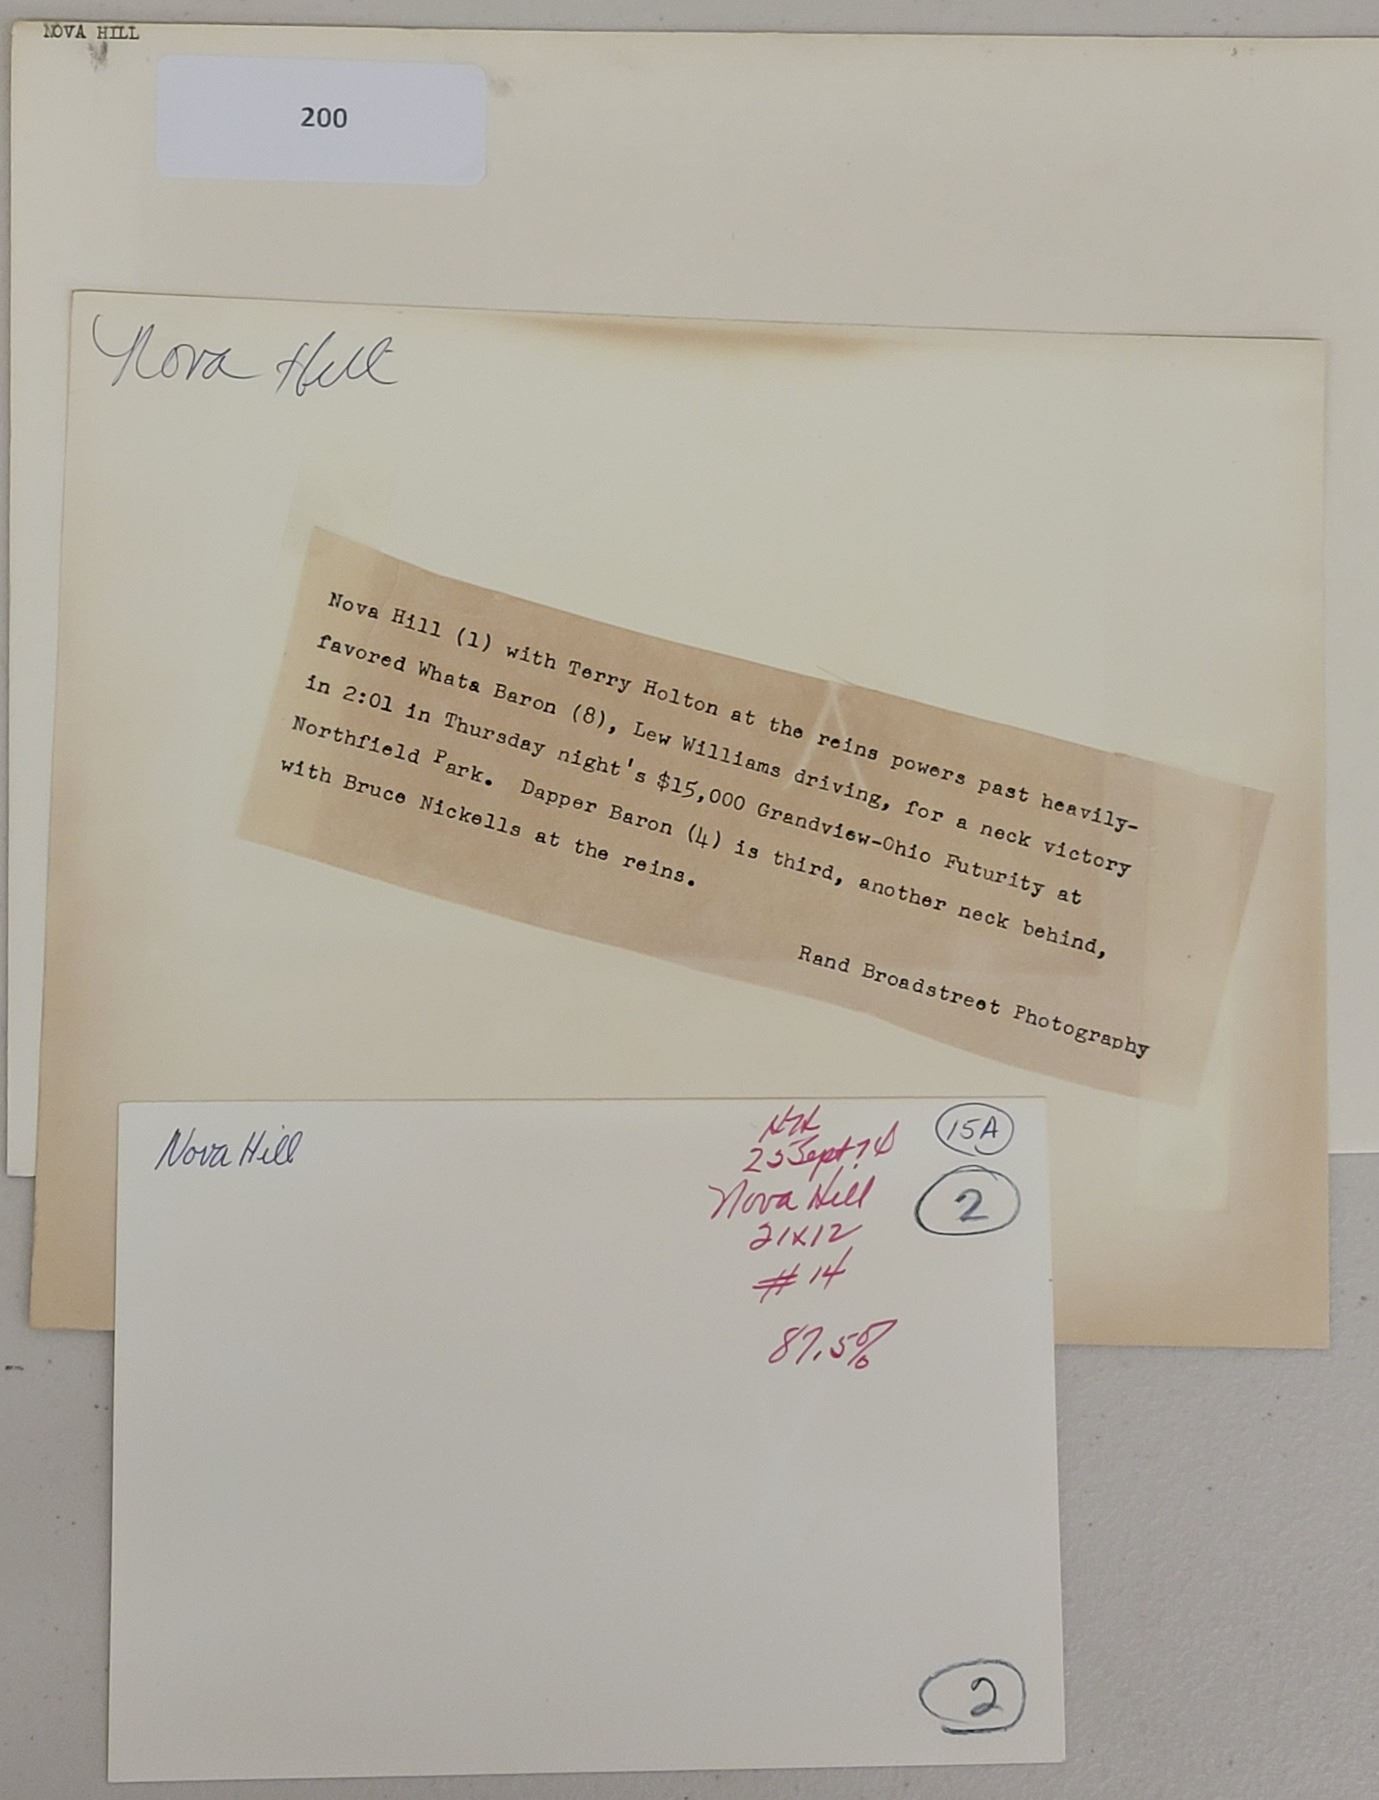 NOVA HILL
200
Nova Hill
Nova Hill (1) with Terry Holton at the reins powers past heavily-
favored Whata Baron (8), Lew Williams driving, for a neck victory
in 2:01 in Thursday night's $15,000 Grandview-Ohio Futurity at
Northfield Park. Dapper Baron (4) is third, another neck behind,
with Bruce Nickells at the reins.
Rand Broadstreet Photography
Nova Hill
15A
Nova Hill
2
21x12
#14
87.5%
2